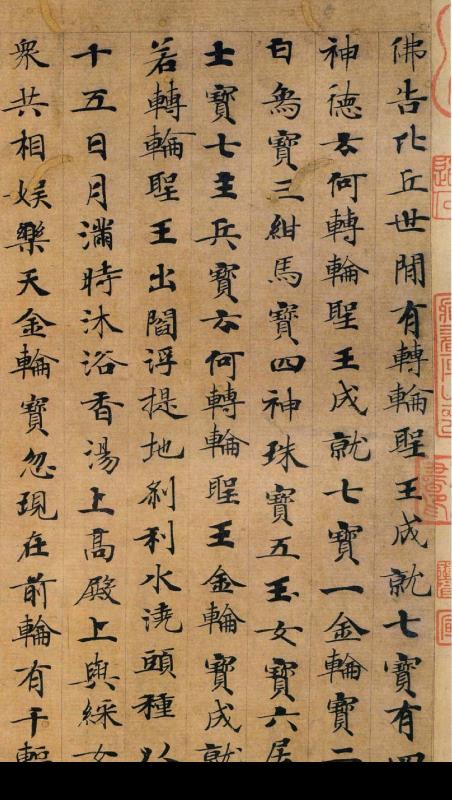 佛告比丘世間有轉輪聖王成就七寶有四
神德云何轉輪聖王成就七寶一金輪寶二
白象寶三紺馬寶四神珠寶五玉女寶六居
士寶七主兵寶云何轉輪聖王金輪寶成就
若轉輪聖王出閻浮提地刹利水澆頭種以
十五日月滿時沐浴香湯上高殿上與綵女
衆共相娛樂天金輪寶忽現在前輪有千